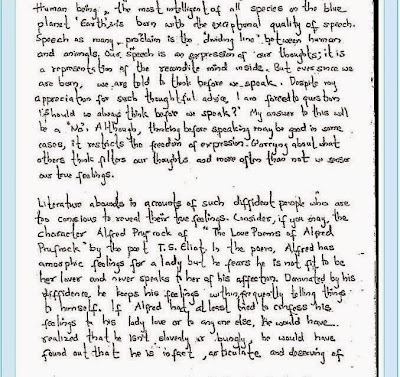 Human being, the most intelligent of all species on the blue
planet 'Earth' is born with the exceptional quality of speech.
Speech as many proclaim is the 'dividing line' between human
and animals. Our speech is an expression of our thoughts; it is
a representation of the recondite mind inside. But ever since we
are born, we are told to think before we speak. Despite my
appreciation for such thoughtful advice, I am forced to question
'Should we always think before we speak?' My answer to this will
be a 'No'. Although, thinking before speaking may be good in some
cases, it restricts the freedom of expression. Worrying about what
others think filters our thoughts and more often than not we sensor
our true feelings.
Literature abounds in accounts of such diffident people who are
too conscious to reveal their true feelings. Consider, if you may, the
character Alfred Prufrock of "The Love Poems of Alfred
Prufrock" by the poet T.S. Eliot. In the poem, Alfred has
amorphic feelings for a lady but he fears he is not fit to be
her lover and never speaks to her of his affection. Dominated by his
diffidence, he keeps his feelings within, frequently telling things
to himself. If Alfred had at least tried to confess his
feelings to his lady love or to any one else, he would have
realized that he isn't slovenly or bungly, he would have
found out that he is infact, articulate and deserving of